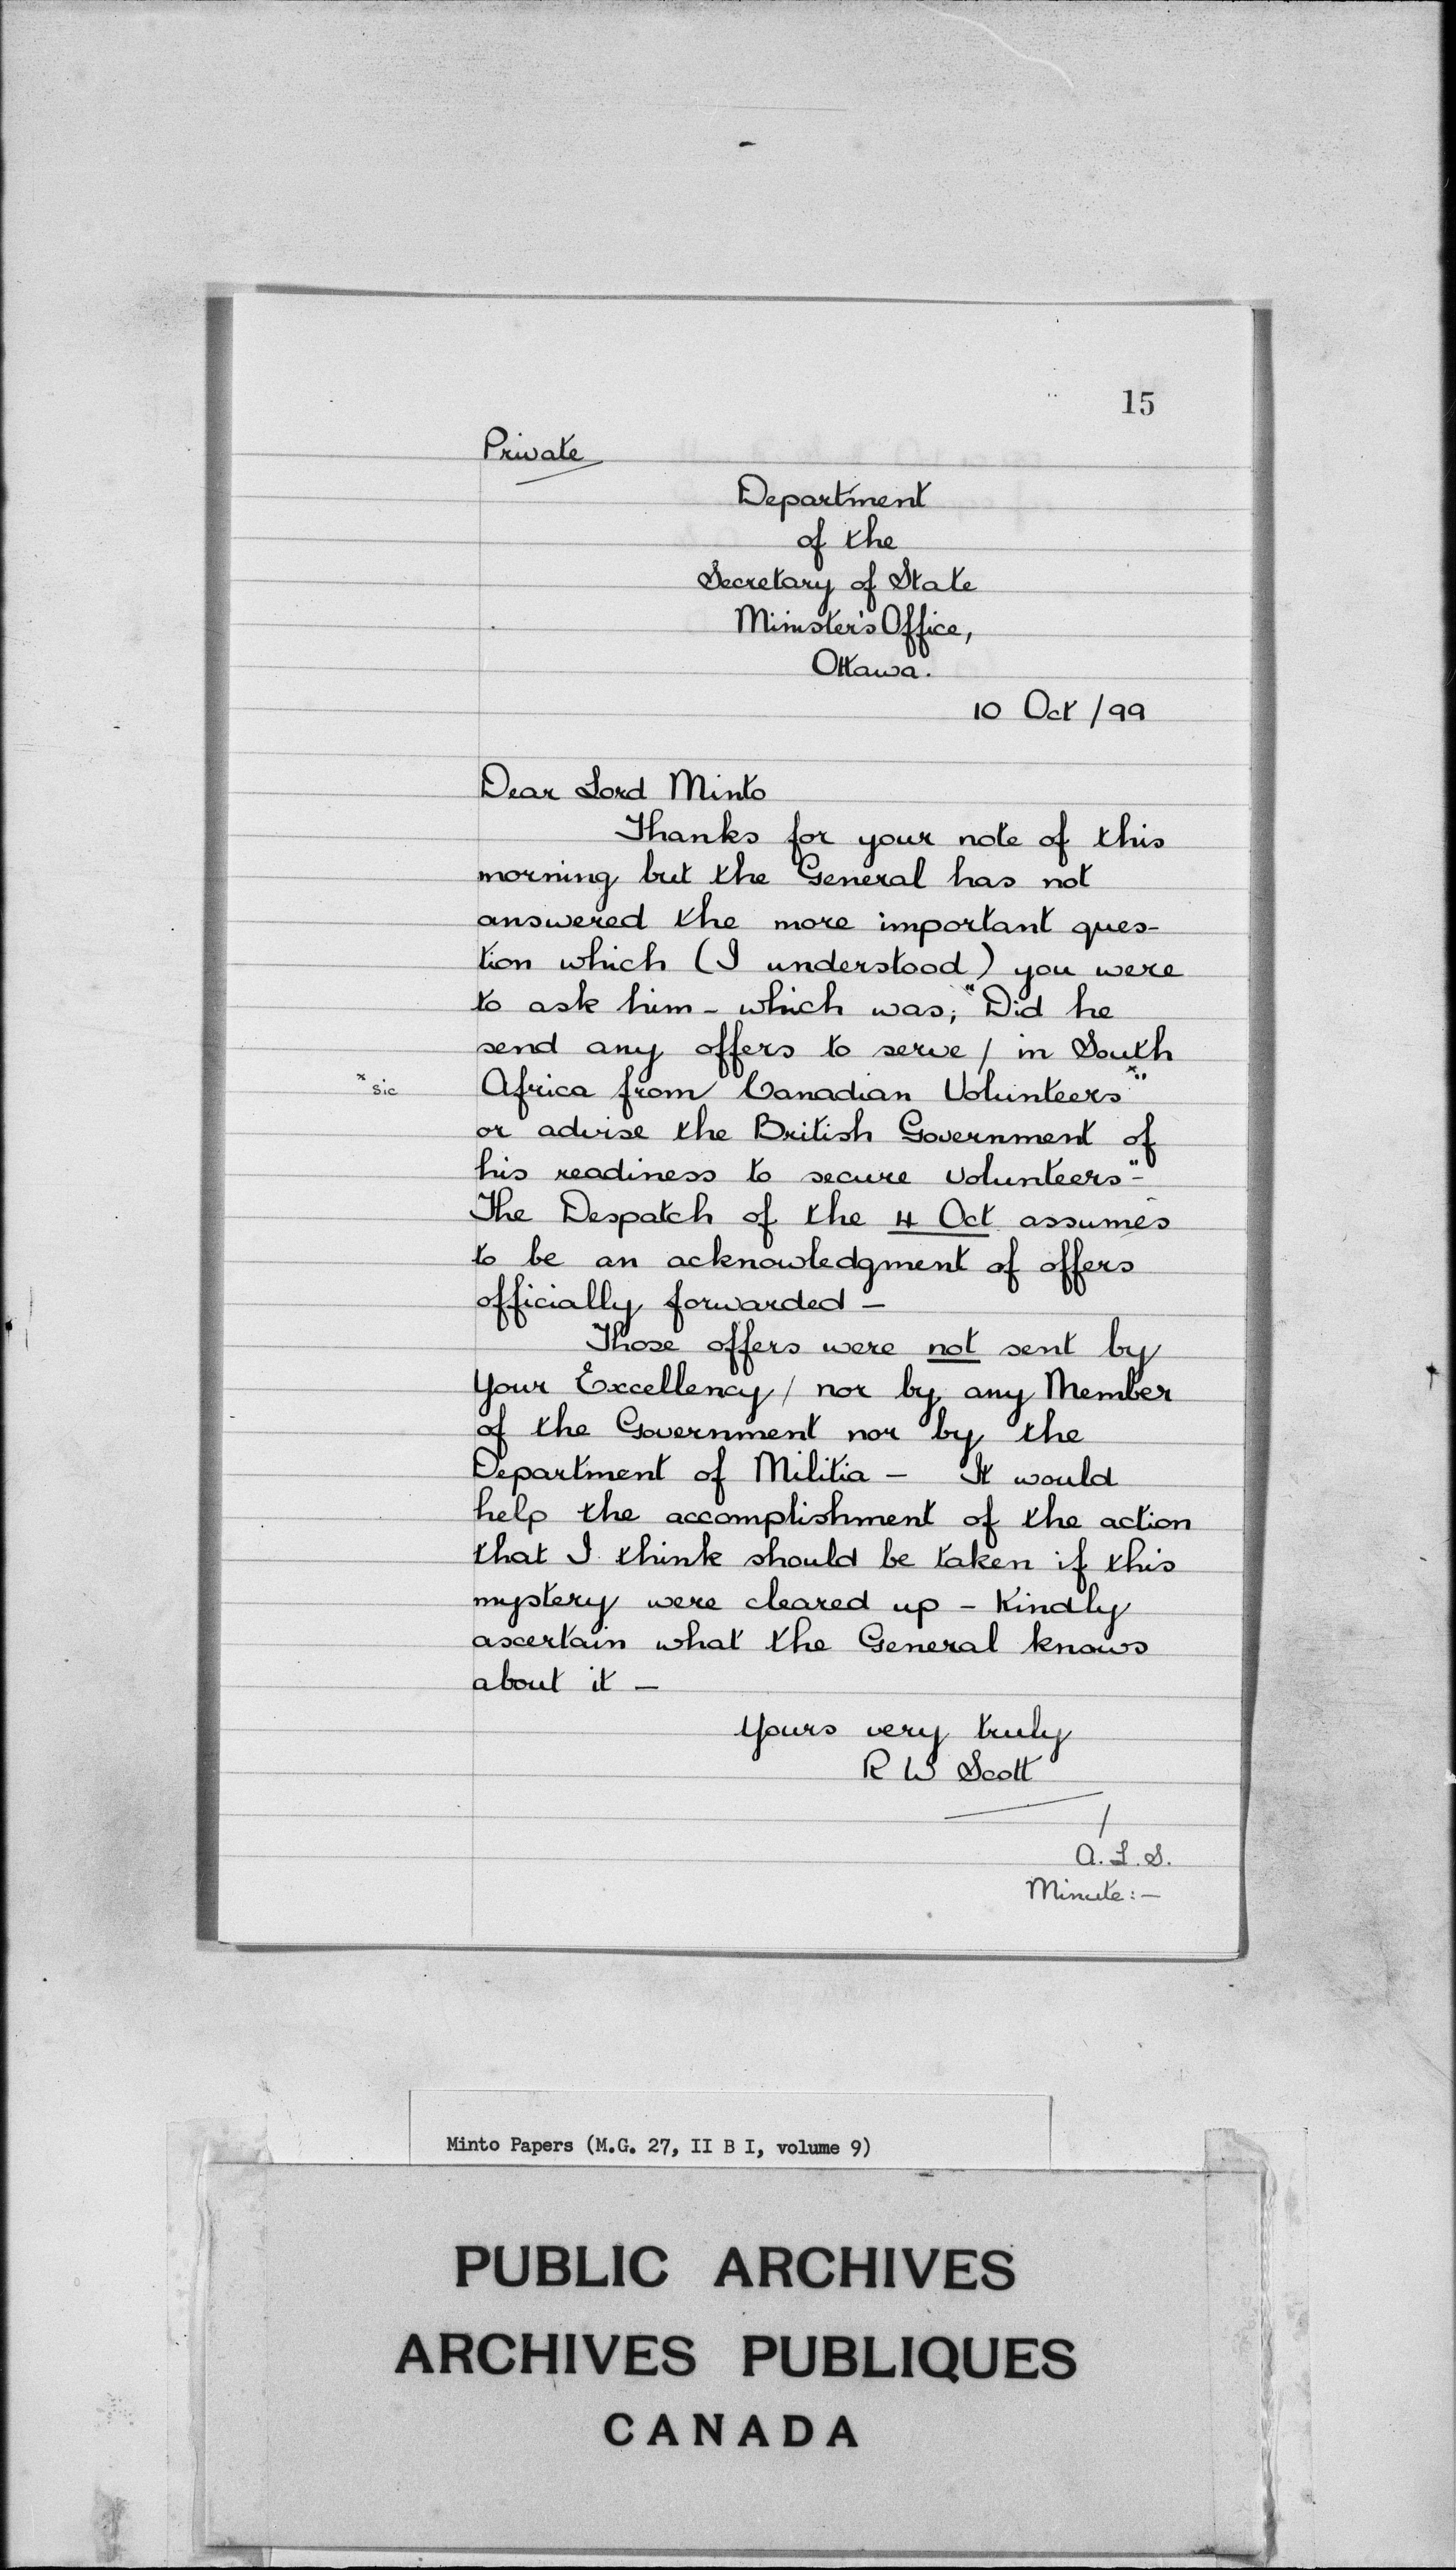 15
Private
Department
of the
Secretary of State
Minister's Office,
Ottawa.
10 Oct / 99
Dear Lord Minto
Thanks for your note of this
morning but the General has not
answered the more important ques-
tion which (I understood) you were
to ask him - which was; "Did he
send any offers to serve / in South
x sic Africa from Canadian Volunteers x"
or advise the British Government of
his readiness to secure volunteers"-
The Despatch of the 4 Oct assumes
to be an acknowledgment of offers
officially forwarded —
Those offers were not sent by
Your Excellency / nor by any Member
of the Government nor by the
Department of Militia — It would
help the accomplishment of the action
that I think should be taken if this
mystery were cleared up - Kindly
ascertain what the General knows
about it —
Yours very truly
R W Scott
A.L.S.
Minute:—
Minto Papers (M.G. 27, II B I, volume 9)
PUBLIC ARCHIVES
ARCHIVES PUBLIQUES
CANADA